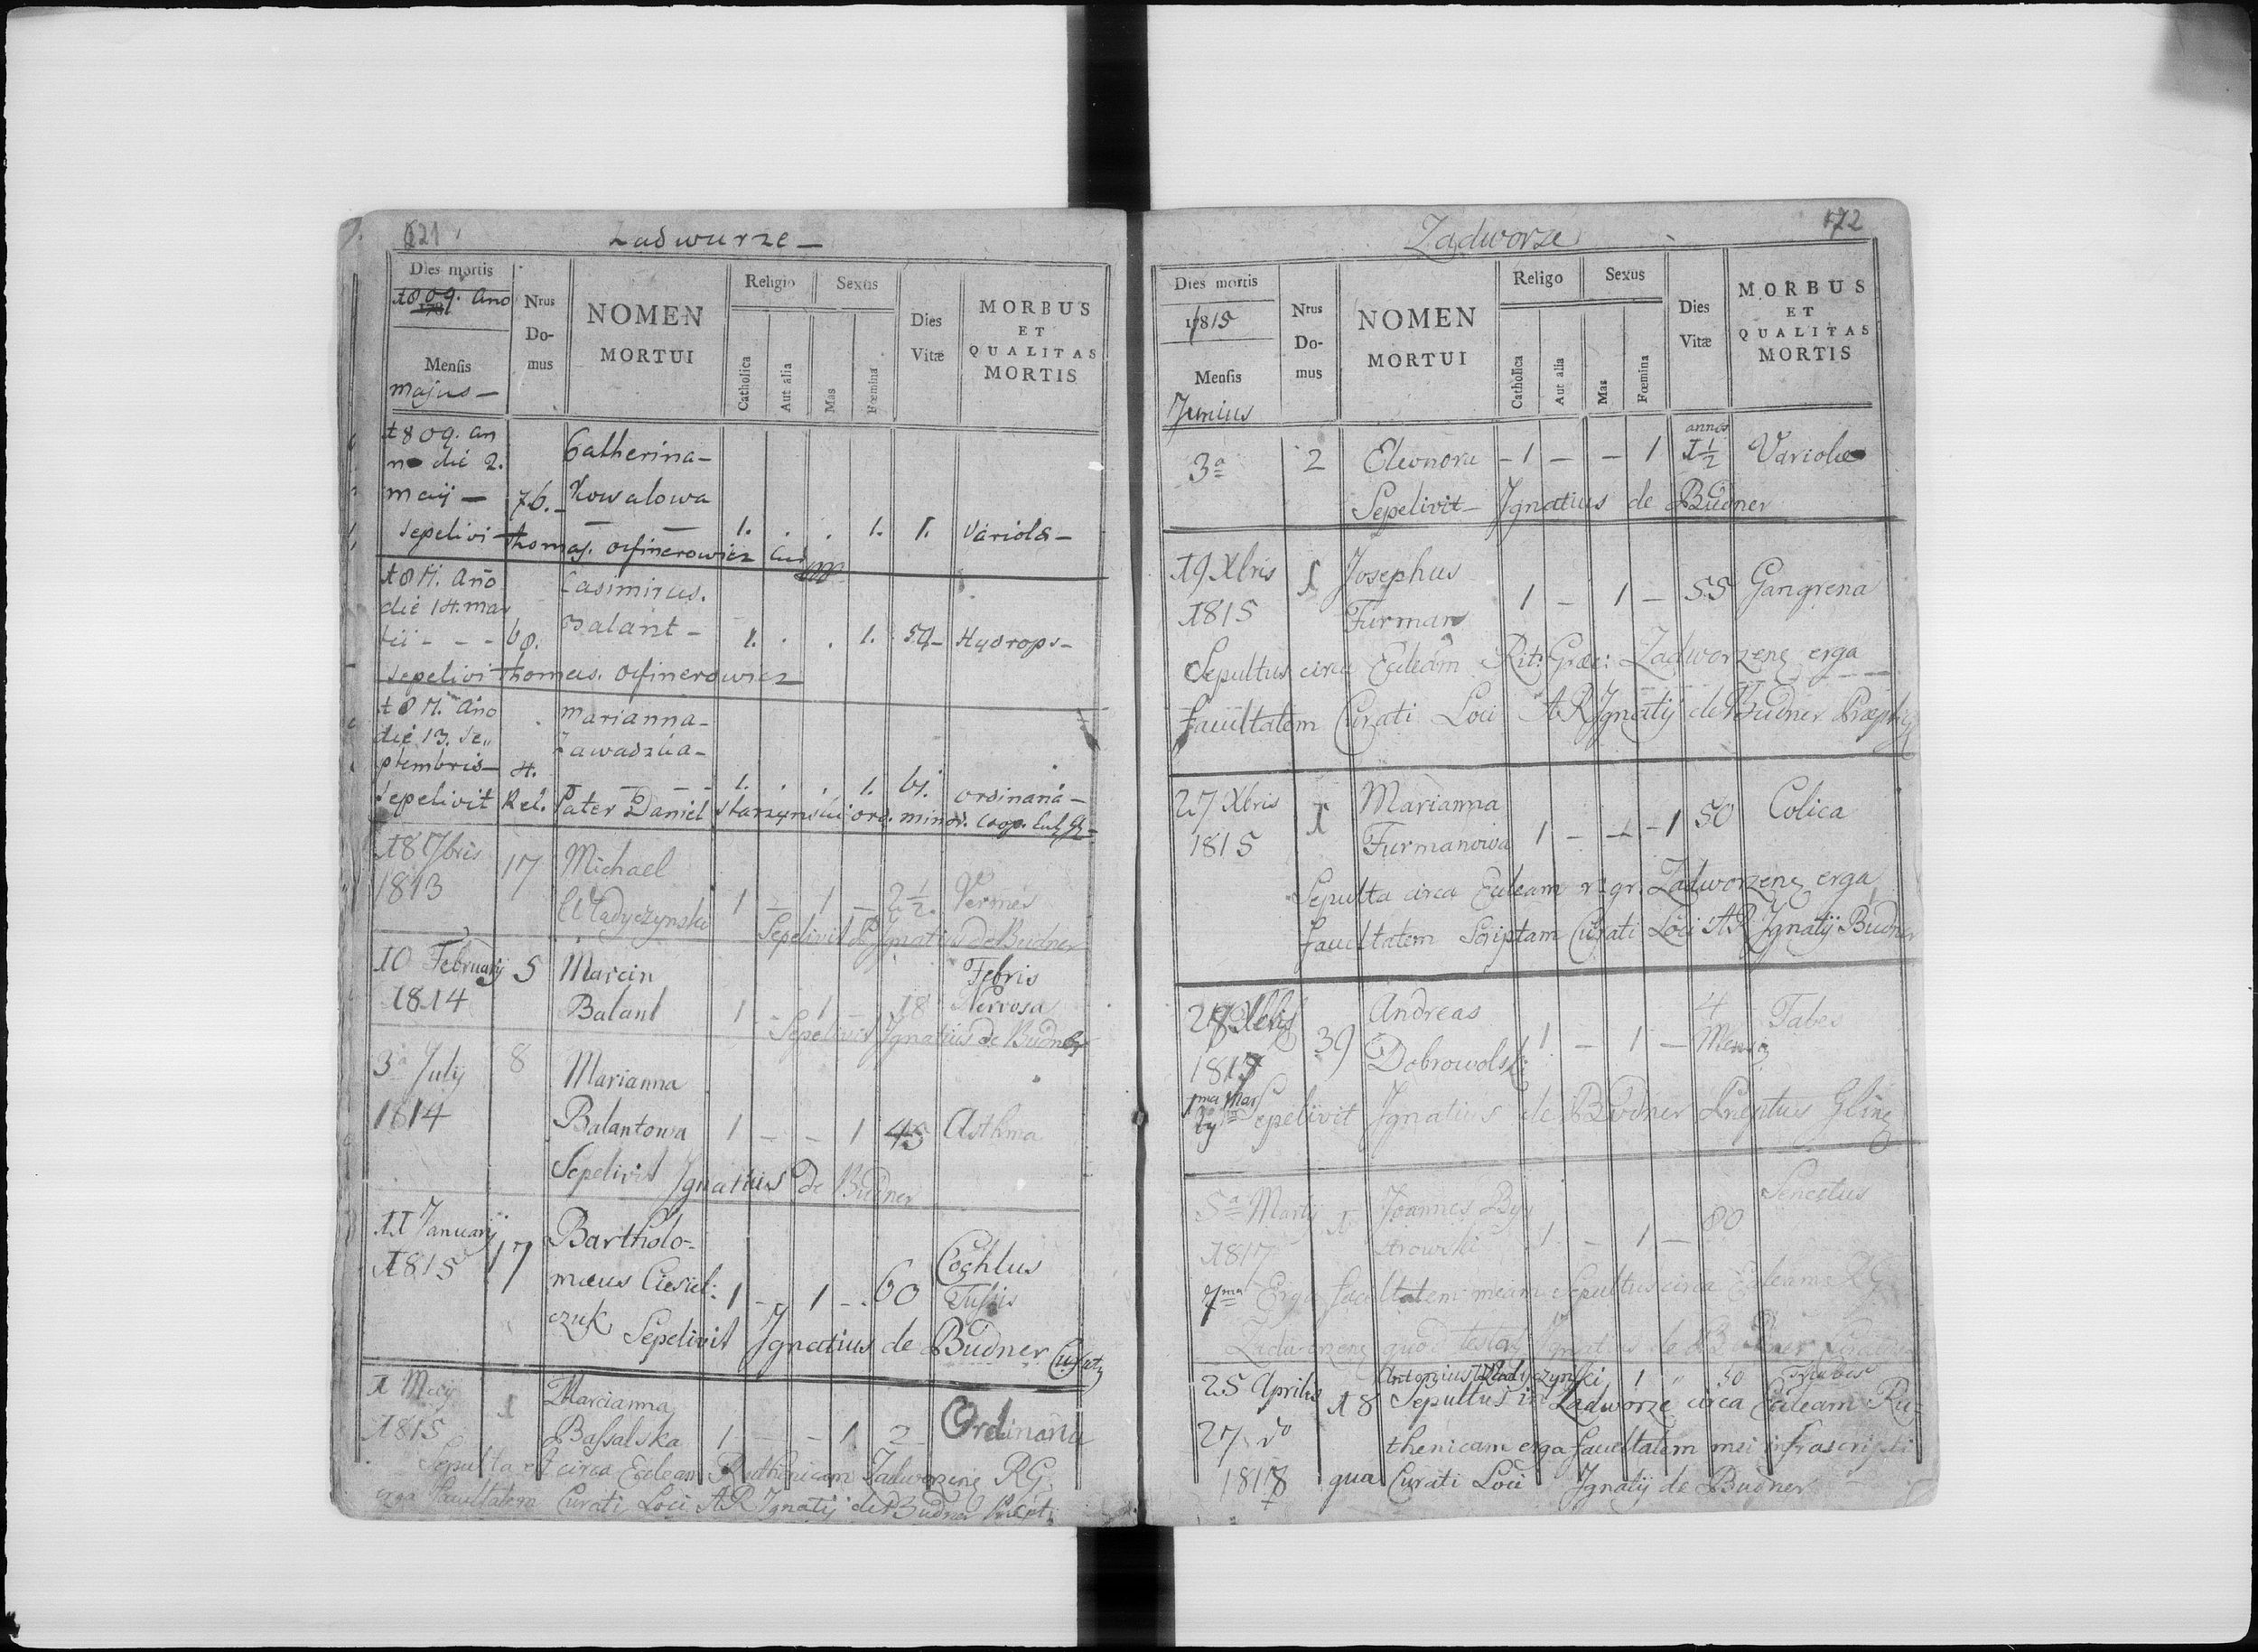 121
Zadwurze –
Dies mortis
1809. Ano
Mensis
majus –
Nrus
Do-
mus
NOMEN
MORTUI
Religio
Catholica
Aut alia
Sexus
Mas
Fœmina
Dies
Vitæ
MORBUS
ET
QUALITAS
MORTIS
1809. an
no die 2. Catherina –
maij – 76. – Kowalowa
– – 1. . . 1. 1. Variola –
sepelivi Thomas
die 14. mar Casimirus.
tii - - - 68. Balant – 1. . . 1. 59 – Hydrops –
sepelivi Thomas.
Ano Marianna –
die 13. Se„
ptembris – 4.
– – – 1. . . 1. 61. ordinaria –
Sepelivit Pater Daniel ord. minor.
18 7bris 17 Michael
1813 1 – 1 – 2 1/2. Vermes
Sepelivit Ignatius de Budner
10 February 5 Marcin Febris
1814 Balant 1 – 1 – 18 Nervosa
Sepelivit Ignatius de Budner
3a July 8 Marianna
1814 Balantowa 1 – – 1 45 Asthma
Sepelivit Ignatius de Budner
11 January 17 Bartholo-
1815 mæus 1 – 1 – 60
Tussis
czuk Sepelivit Ignatius de Budner
1 Maij 1 Marianna
1815 Bassalska 1 – – 1 2 Ordinaria
Sepulta est circa Eccleam Ruthenicam Zadworzens RG
erga facultatem Curati Loci AR Ignatij de Budner
172
Zadworze
Dies mortis
1815
Mensis
Junius
Nrus
Do-
mus
NOMEN
MORTUI
Religo
Catholica
Aut alia
Sexus
Mas
Fœmina
Dies
Vitæ
MORBUS
ET
QUALITAS
MORTIS
annos
3a 2 Eleonora – 1 – – 1 1 1/2 Variolæ
Sepelivit – Ignatius de Budner
19 Xbris 1 Josephus
1815 Furman 1 – 1 – 55 Gangrena
Sepultus circa Eccleam Rit: Græc: Zadworzens erga
facultatem Curati Loci AR Ignatij de Budner
27 Xbris 1 Marianna Colica
1815 Furmanowa 1 – – 1 50
Sepulta circa Eccleam r. gr. Zadworzens erga
facultatem Scriptam Curati Loci AR Ignatij Budner
Andreas 4 Tabes
39 Dobrowolski 1 – 1 – Mens
1817
Sepelivit Ignatius de Budner
5a Martij 1 Joannes Senectus
1817 1 – 1 – 80
7ma Erga facultatem meam sepultus circa Eccleam RG
quod testor Ignatius de Budner
25 Aprilis 18 Antonius 1 50
Sepultus in Zadworze circa Eccleam Ru-
27 thenicam erga facultatem mei infrascripti
qua Curati Loci Ignatij de Budner